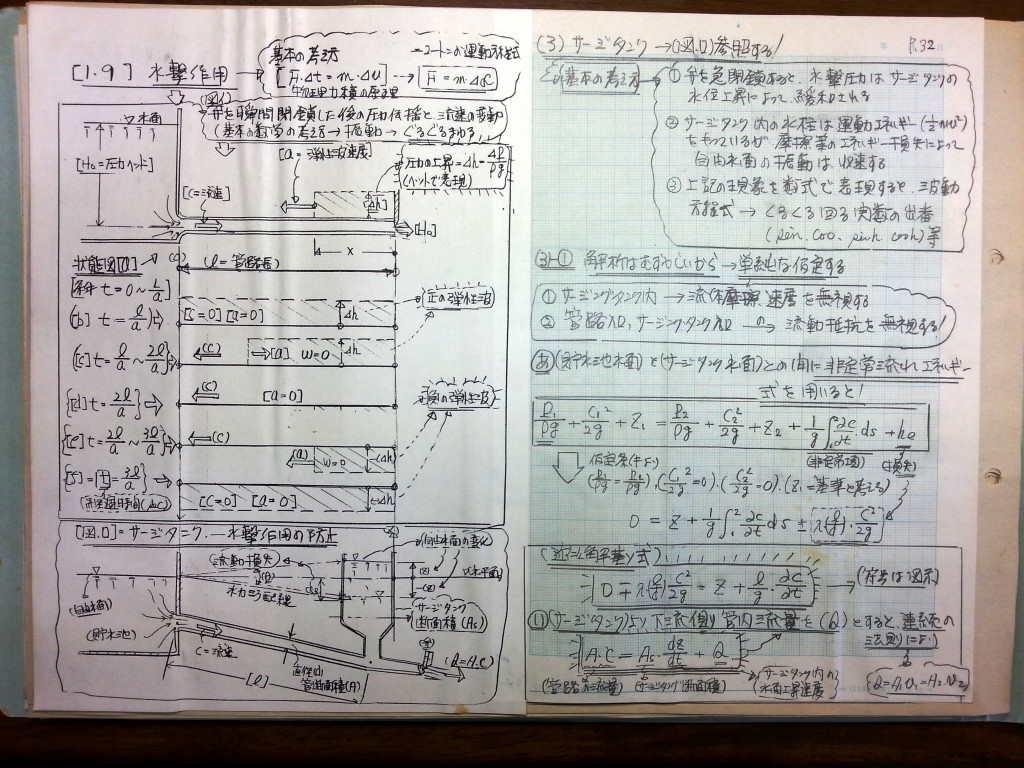 [1.9] 水撃作用
基本の考え方
=ニートンの運動方程式
[F・Δt=m・ΔU]→[F=m・α]
(図イ)
弁を瞬間閉鎖した後の圧力伝播と流速の変動
(基本の数学の考え方→振動→くるくるまわる)
▽水面
[H₀=圧力ヘッド]
[a=弾性波速度]
圧力の上昇=Δh=ΔP/ρg
(ヘッドで表現)
[C=流速]
[Δh]
[H₀]
x
状態図[B]
(a)
(l=管路長)
[条件 t=0~l/a]
[b] t=l/a
[C=0] [a=0]
Δh
正の弾性波
[c] t=l/a~2l/a
(C)
[a] W=0
Δh
[d] t=2l/a
(C)
[a=0]
負の弾性波
[e] t=2l/a~3l/a
(C)
(a)
W=0
(-Δh)
[f]=[t=3l/a]
[C=0] [a=0]
-Δh
[図.ロ]=サージタンク…水撃作用の防止
(自由水面の変化)
(流動損失)
(水平面)
(z)
水力こう配線
he
(自由水面)
(貯水池)
サージタンク
断面積(As)
C=流速
直径(d)
管断面積(A)
[l]
弁
(Q=A.C)
P.32
(3) サージタンク→(図.ロ)参照する!
(基本の考え方)
① 弁を急閉鎖すると、水撃圧力はサージタンクの
水位上昇によって緩和される
② サージタンク内の水柱は運動エネルギー(1/2 mU²)
をもっているが 摩擦等のエネルギー損失によって
自由水面の振動は収速する
③ 上記の現象を数式で表現すると、波動
方程式→くるくる回る関数の出番
(sin. cos. sinh. cosh)等
(3)-① 解析はむずかしいから→単純な仮定する
① サージングタンク内→流体摩擦 速度を無視する
② 管路入口, サージングタンク入口の→流動抵抗を無視する!
(あ)(貯水池水面)と(サージタンク水面)との間に非定常流れエネルギー
式を用いると!
P₁/ρg + C₁²/2g + Z₁ = P₂/ρg + C₂²/2g + Z₂ + 1/g ∫₁² ∂C/∂t ds + he
(非定常項)
(損失)
仮定条件より
(P₁/ρg=P₂/ρg).(C₁²/2g=0).(C₂²/2g=0).(Z₁=基準と考える)
0 = Z + 1/g ∫₁² ∂C/∂t ds ± λ(l/d)・C²/2g
0 ∓ λ(l/d) C²/2g = Z + l/g・∂C/∂t
(符号は図示)
(い)(サージタンク)より下流側 管内流量を(Q)とすると、連続の
法則により
A.C = As dz/dt + Q
(管路の流量) サージタンク断面積)
(サージタンク内の
水面上昇速度)
(Q=A₁U₁=A₂.U₂)